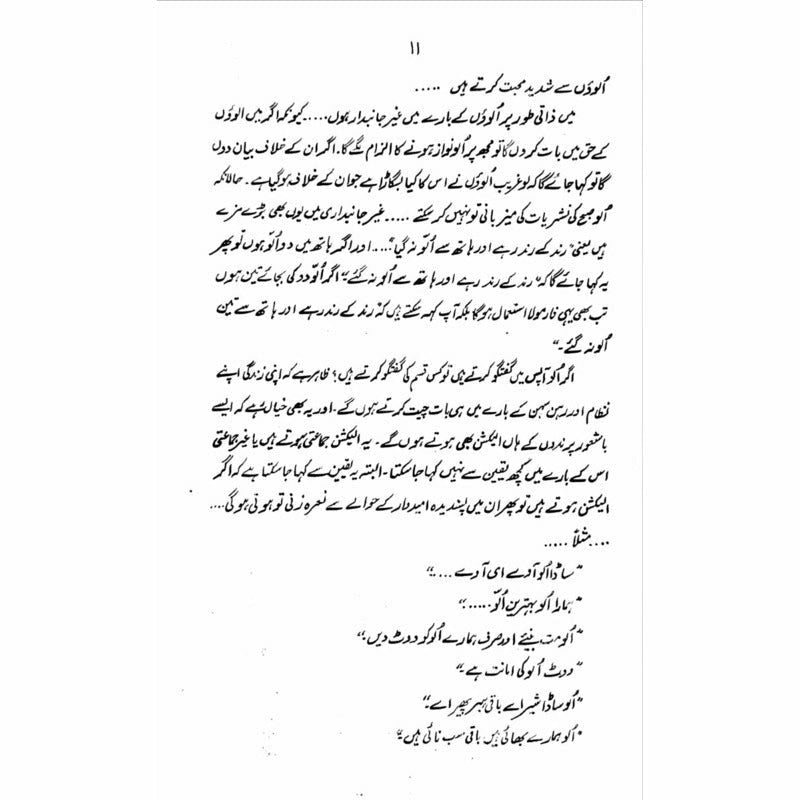 ۱۱
اُلوؤں سے شدید محبت کرتے ہیں .....
میں ذاتی طور پر اُلوؤں کے بارے میں غیر جانبدار ہوں ..... کیونکہ اگر میں الوؤں
کے حق میں بات کر دوں گا تو مجھ پر اُلو نواز ہونے کا الزام لگے گا۔ اگر ان کے خلاف بیان دوں
گا تو کہا جائے گا کہ لو غریب اُلوؤں نے اس کا کیا بگاڑا ہے جو ان کے خلاف ہو گیا ہے۔ حالانکہ
اُلو صبح کی نشریات کی میزبانی تو نہیں کر سکتے ..... غیر جانبداری میں یوں بھی بڑے مزے
ہیں یعنی "رند کے رند رہے اور ہاتھ سے اُلّو نہ گیا" .... اور اگر ہاتھ میں دو اُلّو ہوں تو پھر
یہ کہا جائے گا کہ "رند کے رند رہے اور ہاتھ سے اُلو نہ گئے" اگر اُلّو دو کی بجائے تین ہوں
تب بھی یہی فارمولا استعمال ہو گا بلکہ آپ کہہ سکتے ہیں کہ "رند کے رند رہے اور ہاتھ سے تین
اُلو نہ گئے۔"
اگر اُلو آپس میں گفتگو کرتے ہیں تو کس قسم کی گفتگو کرتے ہیں؟ ظاہر ہے کہ اپنی زندگی اپنے
نظام اور رہن سہن کے بارے میں ہی بات چیت کرتے ہوں گے۔ اور یہ بھی خیال ہے کہ ایسے
باشعور پرندوں کے ہاں الیکشن بھی ہوتے ہوں گے۔ یہ الیکشن جماعتی ہوتے ہیں یا غیر جماعتی
اس کے بارے میں کچھ یقین سے نہیں کہا جا سکتا۔ البتہ یہ یقین سے کہا جا سکتا ہے کہ اگر
الیکشن ہوتے ہیں تو پھر ان میں پسندیدہ امیدوار کے حوالے سے نعرہ زنی تو ہوتی ہو گی ....
.... مثلاً .....
"ساڈا اُلو آوے ای آوے ....."
"ہمارا اُلو بہترین اُلّو ....."
"اُلو مت بنیئے اور صرف ہمارے اُلو کو ووٹ دیں۔"
"ووٹ اُلو کی امانت ہے۔"
"اُلو ساڈا شیر اے باقی ہیر پھیر اے۔"
"اُلو ہمارے بھائی ہیں باقی سب نائی ہیں۔"